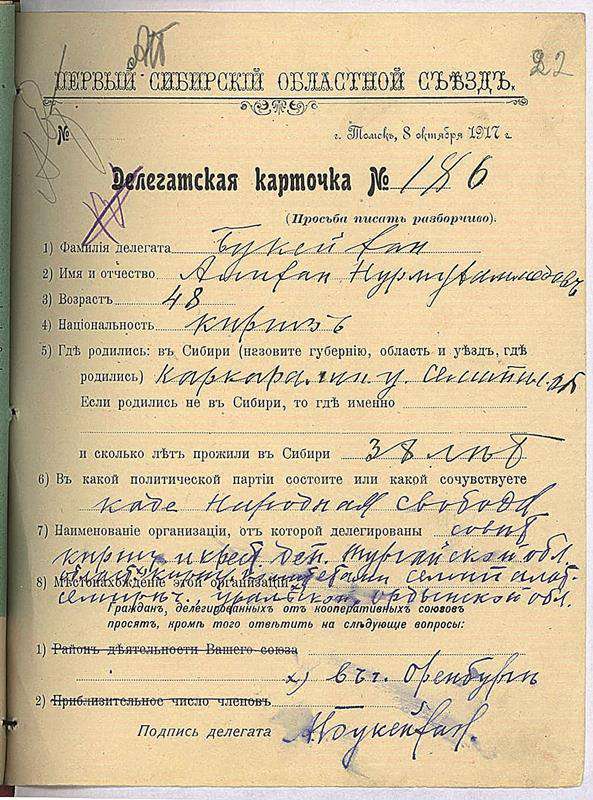 22
ПЕРВЫЙ СИБИРСКІЙ ОБЛАСТНОЙ СЪѢЗДЪ.
№
г. Томскъ, 8 октября 1917 г.
Делегатская карточка № 186
(Просьба писать разборчиво).
1) Фамилія делегата Букейхан
2) Имя и отчество Алихан Нурмухаммедовъ
3) Возрастъ 48
4) Національность киргизъ
5) Гдѣ родились: въ Сибири (назовите губернію, область и уѣздъ, гдѣ
родились) Каркаралин. у. Семипал. об
Если родились не въ Сибири, то гдѣ именно
и сколько лѣтъ прожили въ Сибири 38 лѣт
6) Въ какой политической партіи состоите или какой сочувствуете
каде Народная свобода
7) Наименованіе организаціи, отъ которой делегированы совѣт
кирг. и крест. деп. Тургайской обл.
8) Мѣстонахожденіе этой организаціи
Семирѣч., Уральской, обл.
Гражданъ, делегированныхъ отъ кооперативныхъ союзовъ
просятъ, кромѣ того отвѣтить на слѣдующіе вопросы:
1) Районъ дѣятельности Вашего союза
въ г. Оренбургѣ
2) Приблизительное число членовъ
Подпись делегата АБукейхан.